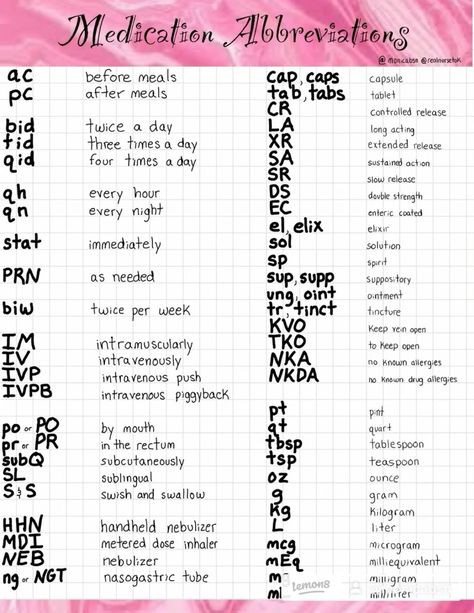 Medication Abbreviations
@monicabsn @realnursetok
ac before meals
pc after meals
bid twice a day
tid three times a day
qid four times a day
qh every hour
qn every night
stat immediately
PRN as needed
biw twice per week
IM intramuscularly
IV intravenously
IVP intravenous push
IVPB intravenous piggyback
po or PO by mouth
pr or PR in the rectum
subQ subcutaneously
SL sublingual
S&S swish and swallow
HHN handheld nebulizer
MDI metered dose inhaler
NEB nebulizer
ng or NGT nasogastric tube
cap, caps capsule
tab, tabs tablet
CR controlled release
LA long acting
XR extended release
SA sustained action
SR slow release
DS double strength
EC enteric coated
el, elix elixir
sol solution
sp spirit
sup, supp suppository
ung, oint ointment
tr, tinct tincture
KVO Keep vein open
TKO to keep open
NKA no known allergies
NKDA no known drug allergies
pt pint
qt quart
tbsp tablespoon
tsp teaspoon
oz ounce
g gram
kg kilogram
L liter
mcg microgram
mEq milliequivalent
m milligram
ml milliliter
lemon8